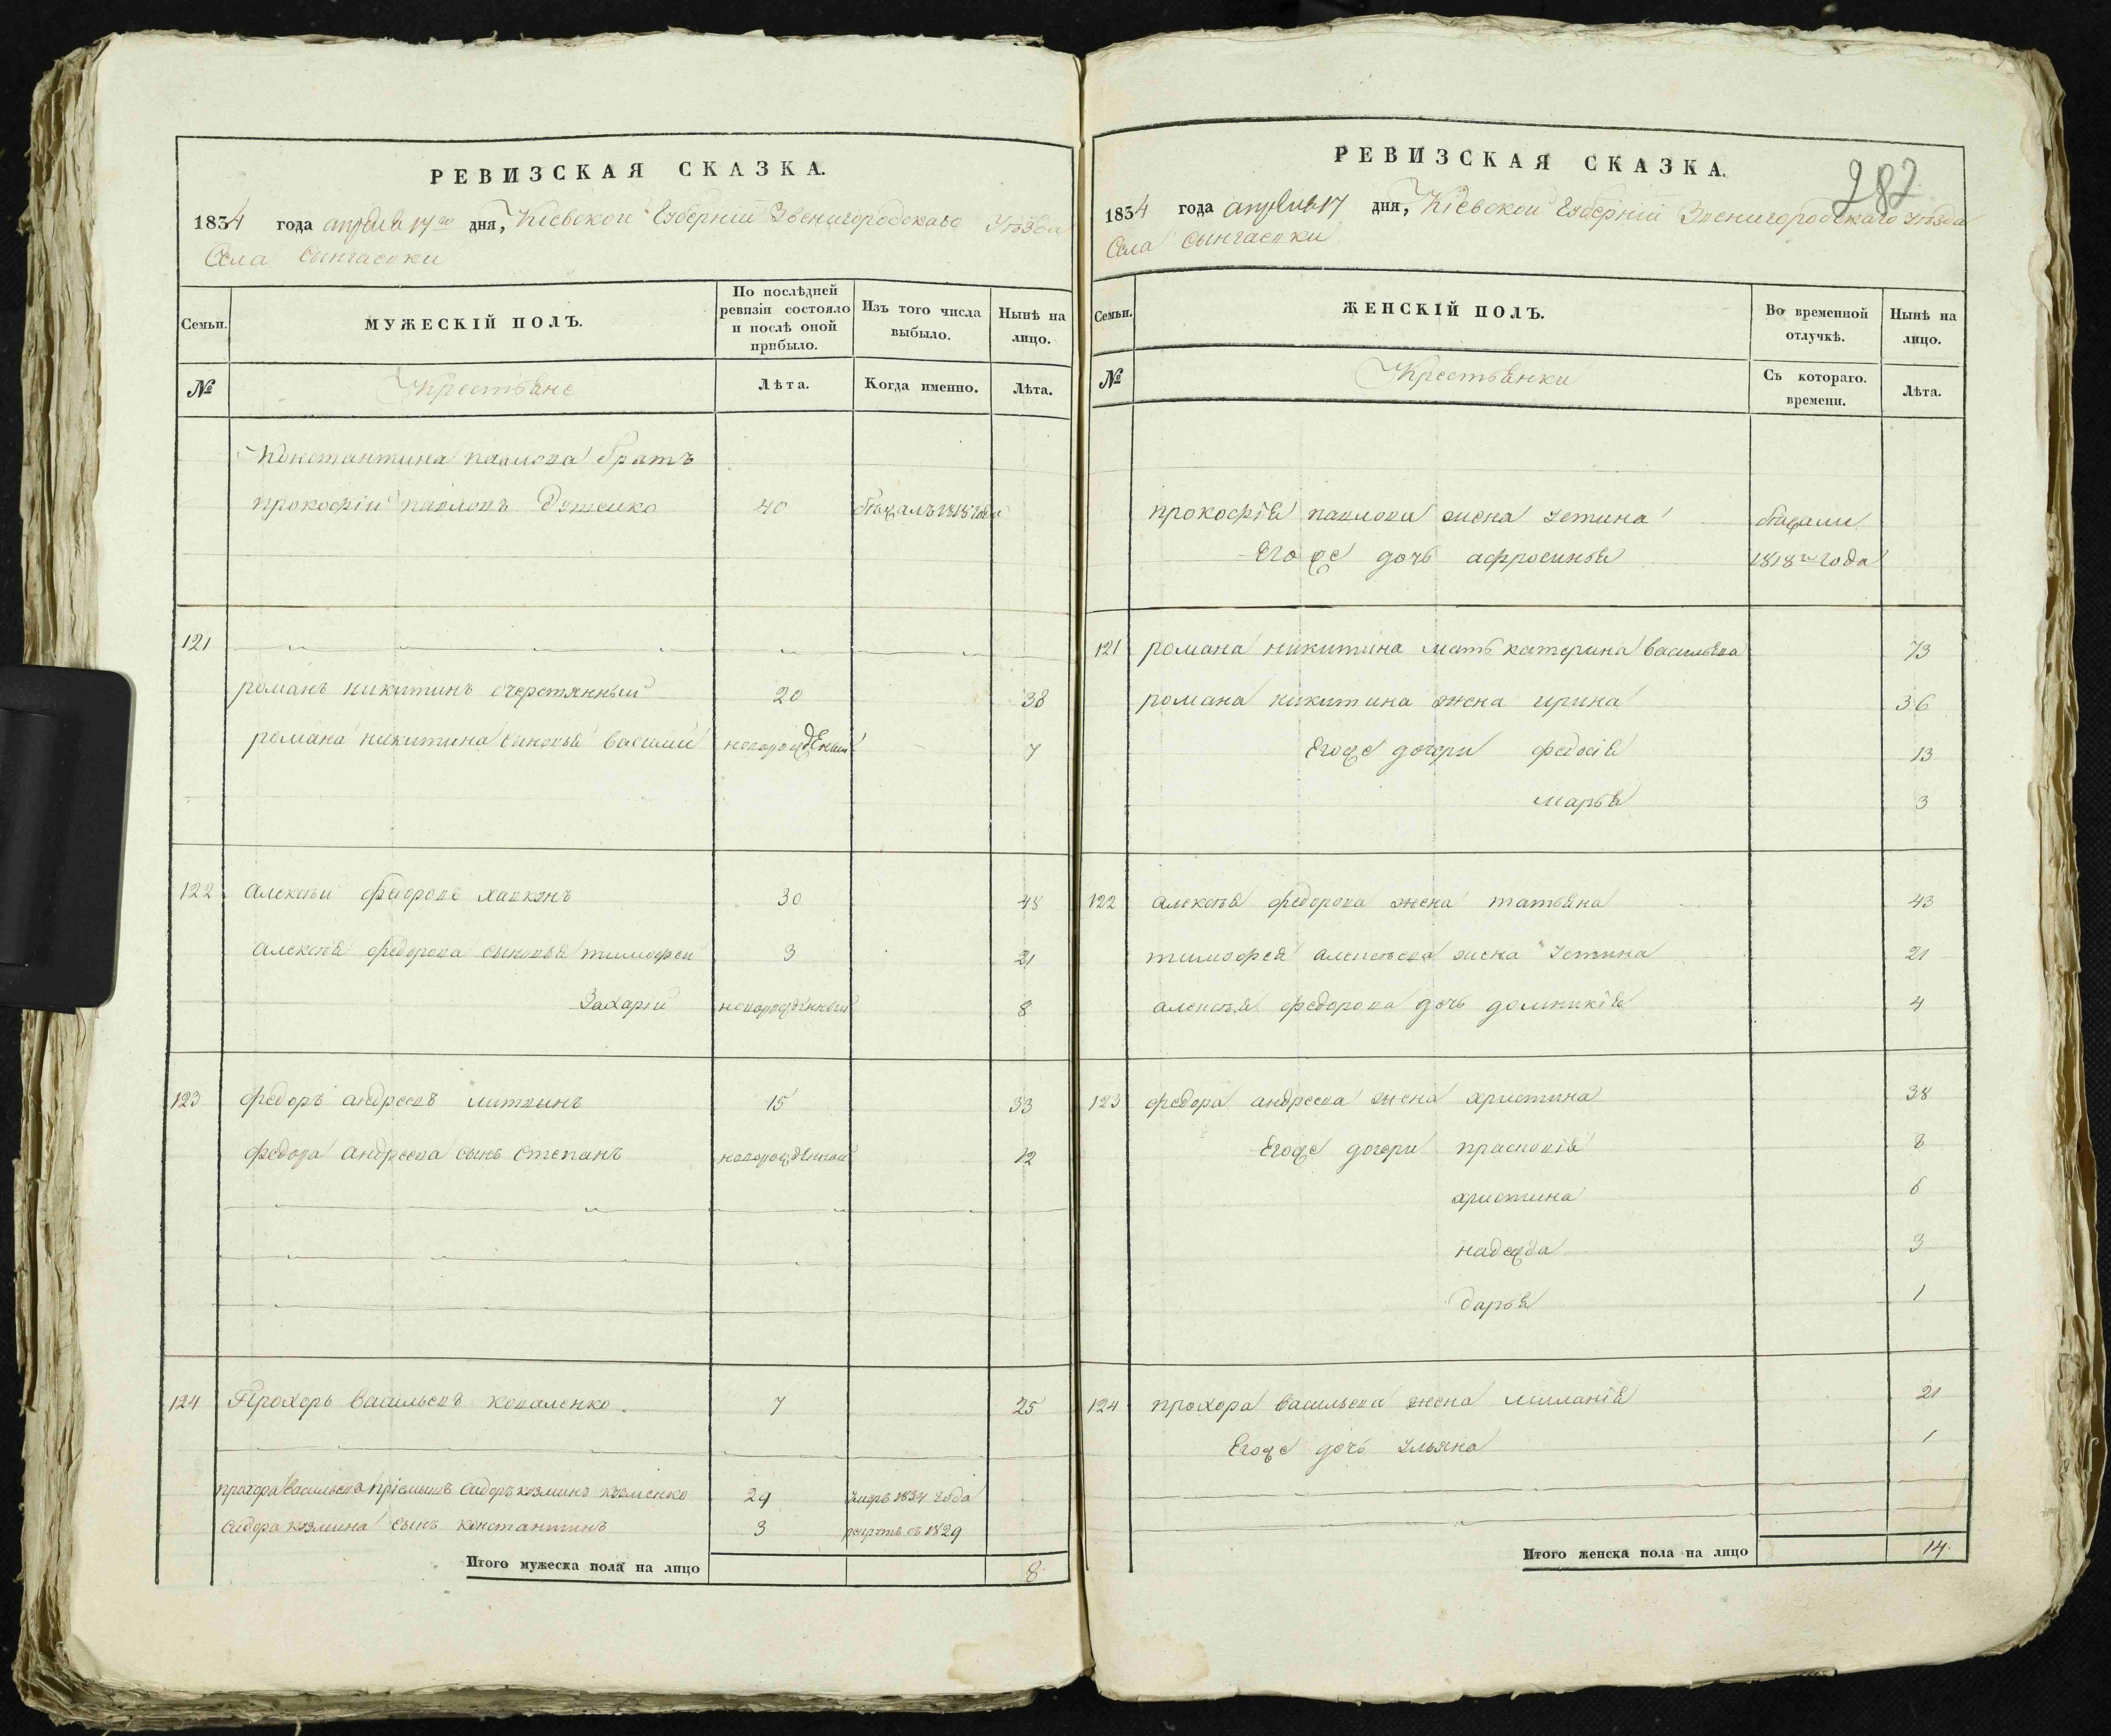 РЕВИЗСКАЯ СКАЗКА.
1834 года апреля 17го дня, Кіевской Губерніи Звенигородскаго Уѣзда
Села
Семьи. МУЖЕСКІЙ ПОЛЪ. По послѣдней ревизіи состояло и послѣ оной прибыло. Изъ того числа выбыло. Нынѣ на лицо.
№ Крестьяне Лѣта. Когда именно. Лѣта.
Константина павлова братъ
прокофіи павловъ 40 1818 года
121
романъ никитинъ очеретянный 20 38
романа никитина синовья василий новорожденый 7
122 алексѣи федоровъ 30 48
алексѣя федорова сыновья тимофеи 3 21
Захарій новорожденный 8
123 федоръ андреевъ литвинъ 15 33
федора андреева сынъ степанъ новорожденный 12
124 Прохоръ васильевъ коваленко. 7 25
прохора васильева пріемышъ сидоръ козминъ 29 умеръ 1834 года
сидора козмина сынъ константинъ 3 съ 1829
Итого мужеска пола на лицо 8
РЕВИЗСКАЯ СКАЗКА.
282
1834 года апреля 17 дня, Кіевской Губерніи Звенигородскаго уѣзда
Села
Семьи. ЖЕНСКІЙ ПОЛЪ. Во временной отлучкѣ. Нынѣ на лицо.
№ Крестьянки Съ котораго. времени. Лѣта.
прокофія павлова жена устина бѣжали
Его же дочь афросинья 1818го года
121 романа никитина мать катерина васильева 73
романа никитина жена ирина 36
Егоже дочери федосія 13
марья 3
122 алексѣя федорова жена татьяна 43
тимофея алексѣева жена Устина 21
алексѣя федорова дочь домникія 4
123 федора андреева жена христина 38
Егоже дочери прасковія 8
христина 6
надежда 3
дарья 1
124 прохора васильева жена миланія 21
Егоже дочь ульяна 1
Итого женска пола на лицо 14.